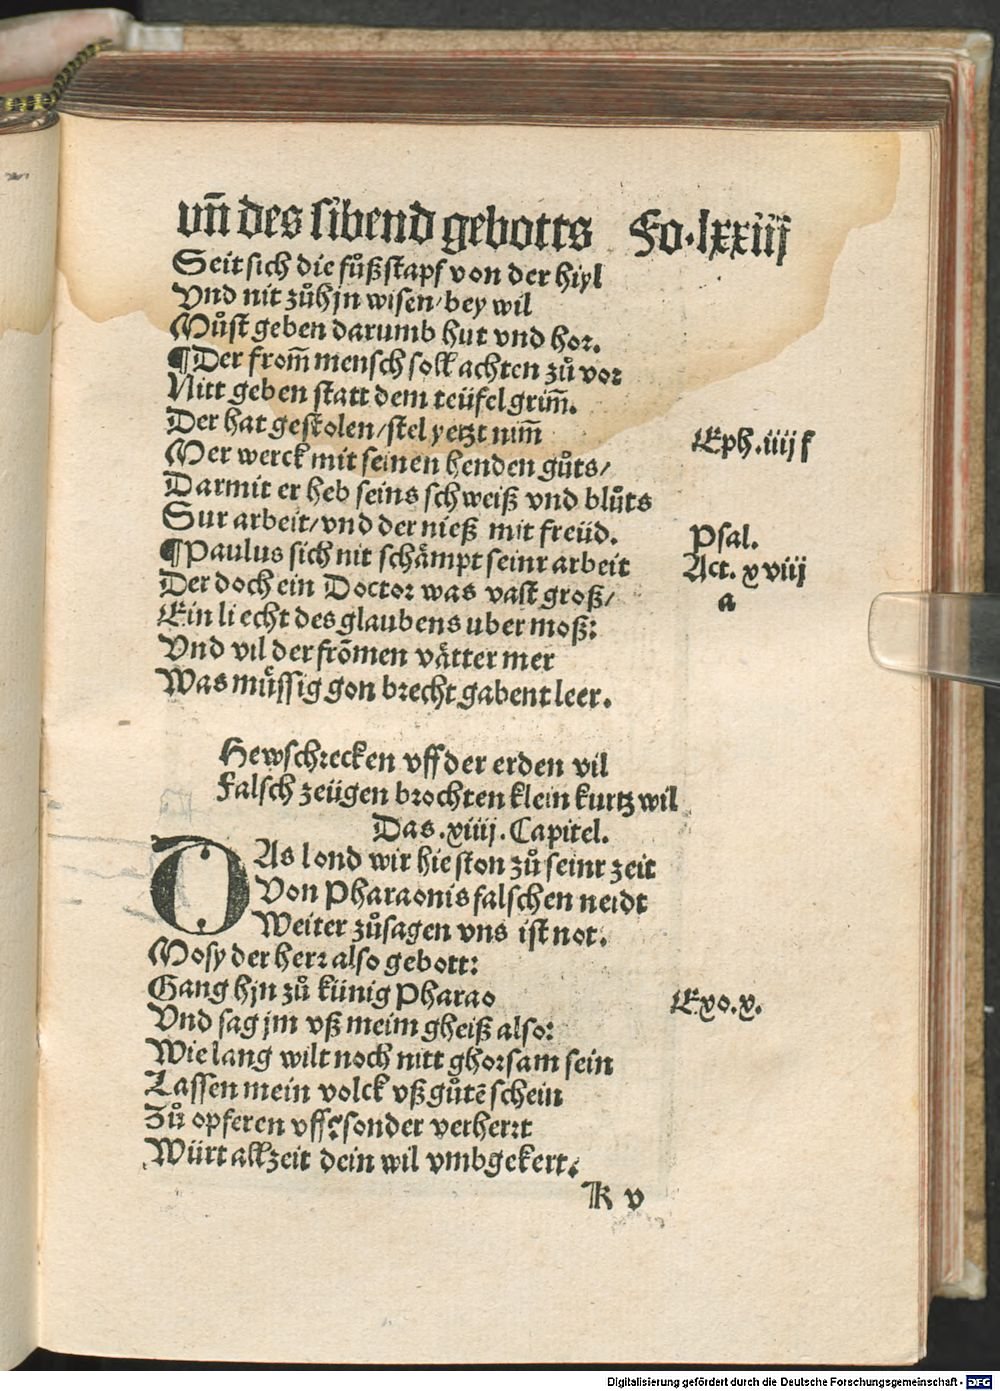 vn̄ des sibend gebotts Fo.lxxiij
Seit sich die fůßstapf von der hiyl
Vnd nit zůhjn wisen/bey wil
Můst geben darumb hut vnd hor.
¶Der from̄ mensch soll achten zů vor
Nitt geben statt dem teüfel grim̄.
Der hat gestolen/stel yetzt nim̄ Eph.iiij f
Mer werck mit seinen henden gůts/
Darmit er heb seins schweiß vnd blůts
Sur arbeit/vnd der nieß mit freüd. Psal.
¶Paulus sich nit schämpt seinr arbeit Act. xviij
Der doch ein Doctor was vast groß/ a
Ein liecht des glaubens uber moß:
Vnd vil der frōmen vätter mer
Was müssig gon brecht gabent leer.
Hewschrecken vff der erden vil
Falsch zeügen brochten klein kurtzwil
Das .xiiij. Capitel.
DAs lond wir hie ston zů seinr zeit
Von Pharaonis falschen neidt
Weiter zůsagen vns ist not.
Mosy der herr also gebott:
Gang hjn zů künig Pharao Exo.v.
Vnd sag jm vß meim gheiß also:
Wie lang wilt noch nitt ghorsam sein
Lassen mein volck vß gůtē schein
Zů opferen vff? sonder verherrt
Würt allzeit dein wil vmbgekert.
K v
Digitalisierung gefördert durch die Deutsche Forschungsgemeinschaft - DFG